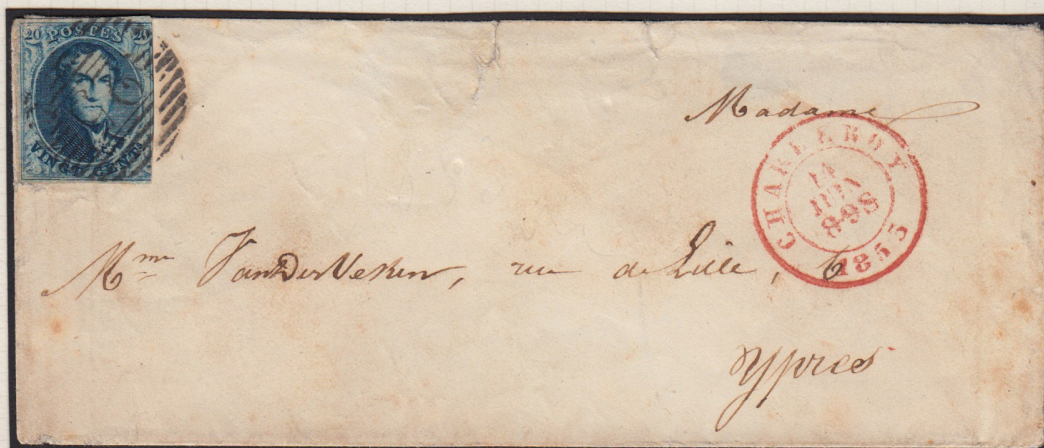 20 POSTES 20
VINGT CENTS
Madame
CHARLEROY
14
JUIN
1853
Mme VanDerVeken, rue de Lille, 6
Ypres